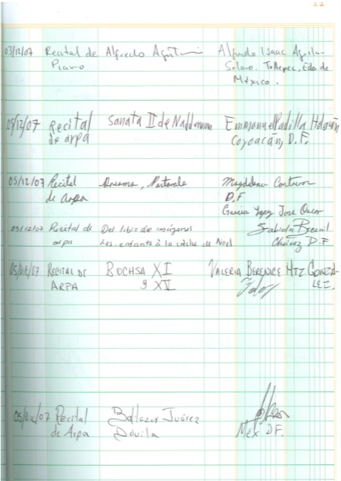 03/12/07 Recital de Piano Alfredo Agustin Alfredo Isaac Aguilar
Solano. Toltepec, Edo. de
México.
05/12/07 Recital de arpa Sonata II de Naderman Emmanuel Padilla Holguín
Coyoacán, D.F.
05/12/07 Recital de Arpa Pastorale Magdalena
D.F
García López José Oscar
05/12/07 Recital de arpa Del libro de imágenes
Les enfants à la crèche de Noël
Chávez D.F
05/12/07 RECITAL DE ARPA BOCHSA XI
y XV VALERIA BERENICE HTZ GONZÁ
LEZ.
05/12/07 Recital de Arpa Baltazar Juárez
Dávila
Méx D.F.